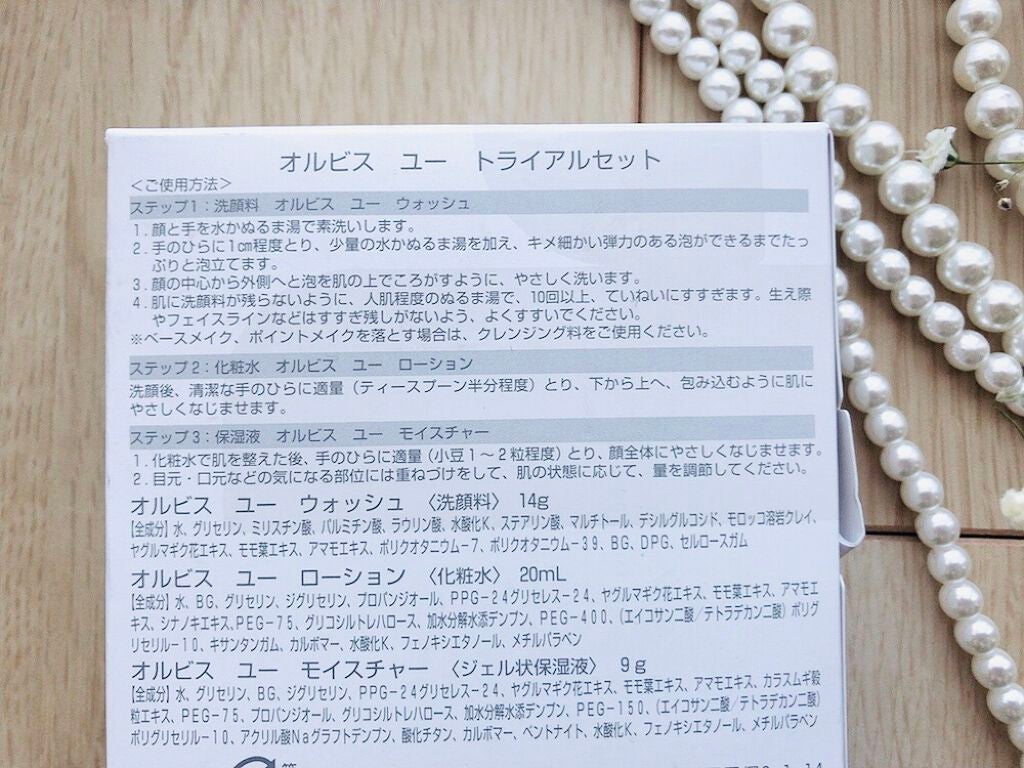 オルビス　ユー　トライアルセット
＜ご使用方法＞
ステップ1：洗顔料　オルビス　ユー　ウォッシュ
1. 顔と手を水かぬるま湯で素洗いします。
2. 手のひらに1cm程度とり、少量の水かぬるま湯を加え、キメ細かい弾力のある泡ができるまでたっ
ぷりと泡立てます。
3. 顔の中心から外側へと泡を肌の上でころがすように、やさしく洗います。
4. 肌に洗顔料が残らないように、人肌程度のぬるま湯で、10回以上、ていねいにすすぎます。生え際
やフェイスラインなどはすすぎ残しがないよう、よくすすいでください。
※ベースメイク、ポイントメイクを落とす場合は、クレンジング料をご使用ください。
ステップ2：化粧水　オルビス　ユー　ローション
洗顔後、清潔な手のひらに適量（ティースプーン半分程度）とり、下から上へ、包み込むように肌に
やさしくなじませます。
ステップ3：保湿液　オルビス　ユー　モイスチャー
1. 化粧水で肌を整えた後、手のひらに適量（小豆1～2粒程度）とり、顔全体にやさしくなじませます。
2. 目元・口元などの気になる部位には重ねづけをして、肌の状態に応じて、量を調節してください。
オルビス　ユー　ウォッシュ　〈洗顔料〉　14g
[全成分] 水、グリセリン、ミリスチン酸、パルミチン酸、ラウリン酸、水酸化K、ステアリン酸、マルチトール、デシルグルコシド、モロッコ溶岩クレイ、
ヤグルマギク花エキス、モモ葉エキス、アマモエキス、ポリクオタニウム-7、ポリクオタニウム-39、BG、DPG、セルロースガム
オルビス　ユー　ローション　〈化粧水〉　20mL
[全成分] 水、BG、グリセリン、ジグリセリン、プロパンジオール、PPG-24グリセレス-24、ヤグルマギク花エキス、モモ葉エキス、アマモエ
キス、シナノキエキス、PEG-75、グリコシルトレハロース、加水分解水添デンプン、PEG-400、（エイコサン二酸／テトラデカン二酸）ポリグ
リセリル-10、キサンタンガム、カルボマー、水酸化K、フェノキシエタノール、メチルパラベン
オルビス　ユー　モイスチャー　〈ジェル状保湿液〉　9g
[全成分] 水、グリセリン、BG、ジグリセリン、PPG-24グリセレス-24、ヤグルマギク花エキス、モモ葉エキス、アマモエキス、カラスムギ穀
粒エキス、PEG-75、プロパンジオール、グリコシルトレハロース、加水分解水添デンプン、PEG-150、（エイコサン二酸／テトラデカン二酸）
ポリグリセリル-10、アクリル酸Naグラフトデンプン、酸化チタン、カルボマー、ベントナイト、水酸化K、フェノキシエタノール、メチルパラベン